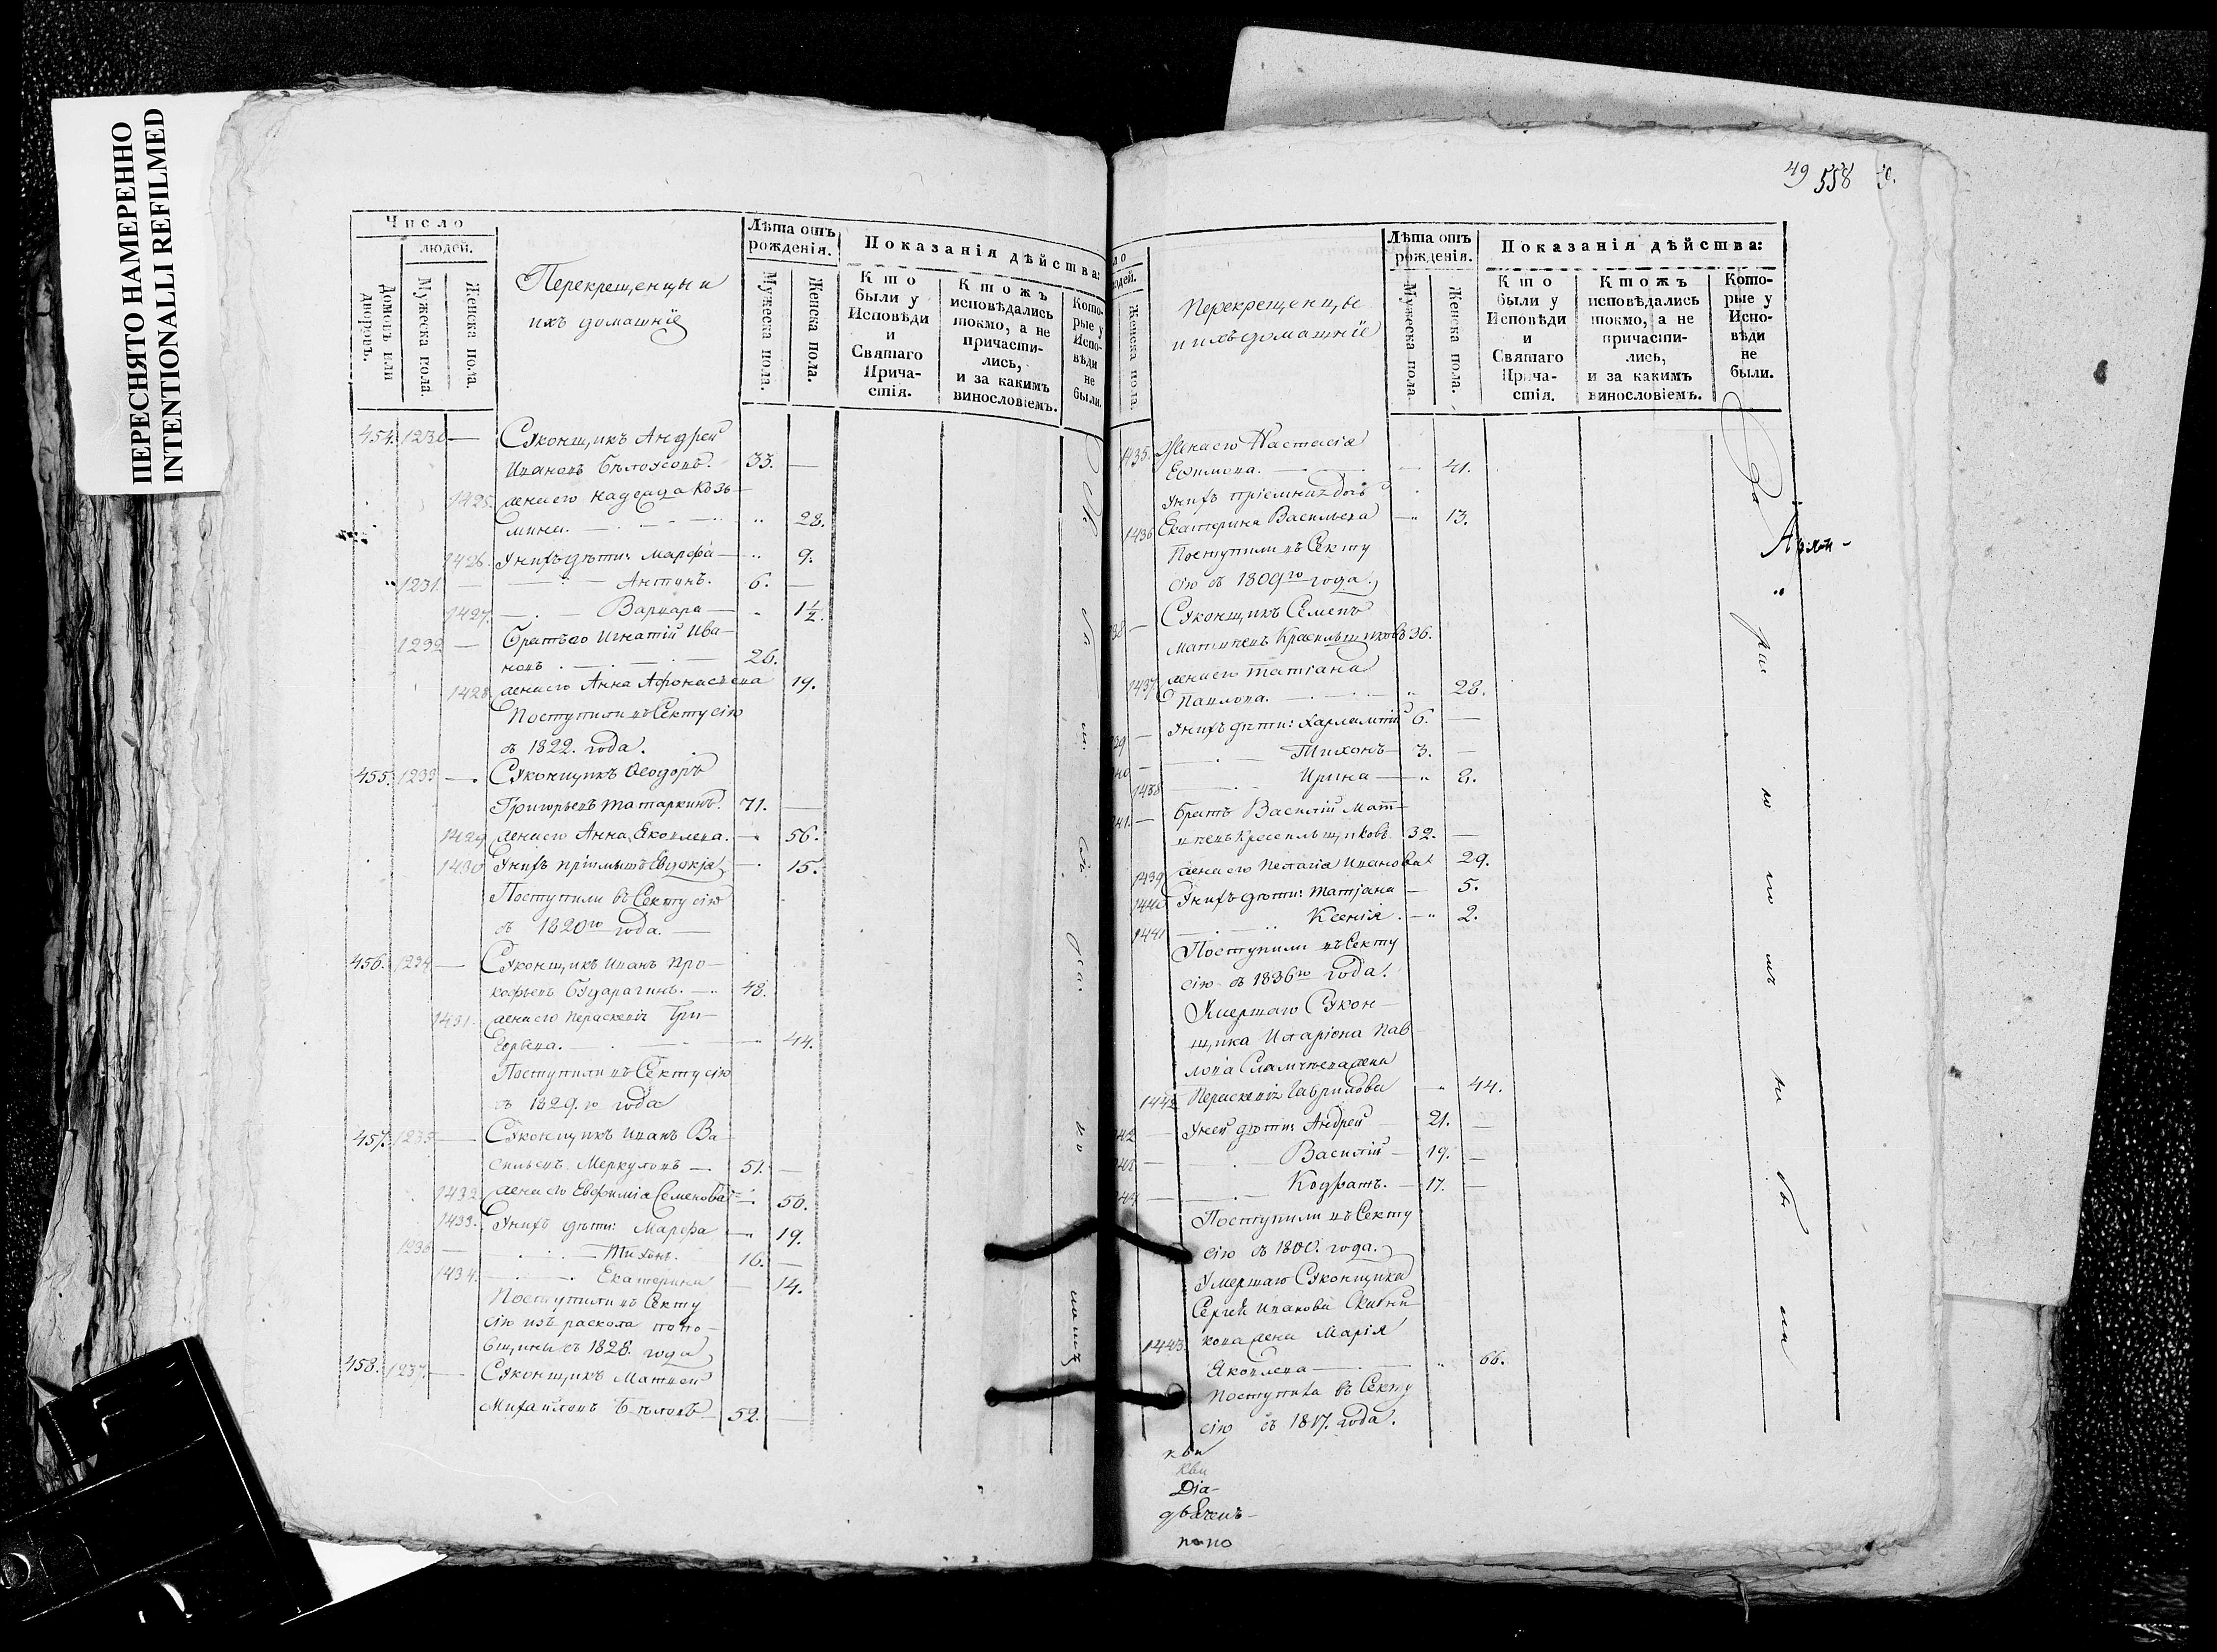 ПЕРЕСНЯТО НАМЕРЕННО
INTENTIONALLI REFILMED
Число
людей.
Домовъ или дворовъ.
Мужеска пола.
Женска пола.
Перекрещенцы и
ихъ домашніе
Лѣта отъ
рожденія.
Мужеска пола.
Женска пола.
Показанія дѣйства:
Кто
были у
Исповѣди
и
Святаго
Прича-
стія.
Ктожъ
исповѣдались
токмо, а не
причасти-
лись,
и за какимъ
винословіемъ.
Кото-
рые у
Испо-
вѣди
не
были.
454. 1230 — Суконщикъ Андрей
Ивановъ Бѣлоусовъ. 33. —
1425. жена его Надежда Козь-
мина. — 28.
1426. У нихъ дѣти: Марфа — 9.
1231. — Антонъ. 6. —
1427. — Варвара — 1½
1232 — Братъ его Игнатій Ива-
новъ. — 26.
1428. жена его Анна Афонасьева 19.
Поступили въ Секту сію
съ 1822. года.
455. 1233 — Суконщикъ Ѳеодоръ
Григорьевъ Татаркинъ. 71. —
1429. жена его Анна Яковлева. — 56.
1430 У нихъ пріимышъ Евдокія — 15.
Поступили въ Секту сію
съ 1820го года. —
456. 1234 — Суконщикъ Иванъ Про-
кофьевъ Бударагинъ. — 48.
1431. жена его Параскевія Гри-
горьева. — 44.
Поступили въ Секту сію
съ 1829.го года
457. 1235 — Суконщикъ Иванъ Ва-
сильевъ Меркуловъ — 51. —
1432. жена его Евфимія Семенова — 50.
1433. У нихъ дѣти: Марфа — 19.
1236 — Тихонъ. 16. —
1434. — Екатерина — 14.
Поступили въ Секту
сію изъ раскола попо-
вщины съ 1828. года
458. 1237. — Суконщикъ Матвей
Михайловъ Бѣловъ 52. —
49 558
Женска пола.
Перекрещенцы
и ихъ домашніе
Лѣта отъ
рожденія.
Мужеска пола
Женска пола.
Показанія дѣйства:
Кто
были у
Исповѣди
и
Святаго
Прича-
стія.
Ктожъ
исповѣдались
токмо, а не
причасти-
лись,
и за какимъ
винословіемъ.
Кото-
рые у
Испо-
вѣди
не
были.
1435. Жена его Настасія
Ефимова. — 41.
У нихъ пріемная дочь
1436 Екатерина Васильева — 13.
Поступили въ Секту
сію съ 1809го года.
38 — Суконщикъ Семенъ
Матвеевъ Красильщиковъ 36.
1437 жена его Татіана
Павлова. — 28.
39 — У нихъ дѣти: Харлампій 6. —
40 — Тихонъ — 3. —
1438 — Ирина —
41. — Братъ Василій Мат-
веевъ Красильщиковъ 32. —
1439 жена его Пелагія Иванова 29.
1440 У нихъ дѣти: Татіана — 5.
1441 — Ксенія — 2.
Поступили въ Секту
сію съ 1836го года.
Умершаго Сукон-
щика Иларіона Пав
лова жена
1442 Параскевія Гаврилова — 44.
42 — У ней дѣти: Андрей — 21. —
43 — Василій — 19. —
44 — Кодратъ. — 17. —
Поступили въ Секту
сію съ 1800. года.
Умершаго Суконщика
Сергея Иванова
1443 жена Марія
Яковлева — 66.
Поступила въ Секту
сію съ 1817. года.
Діа-